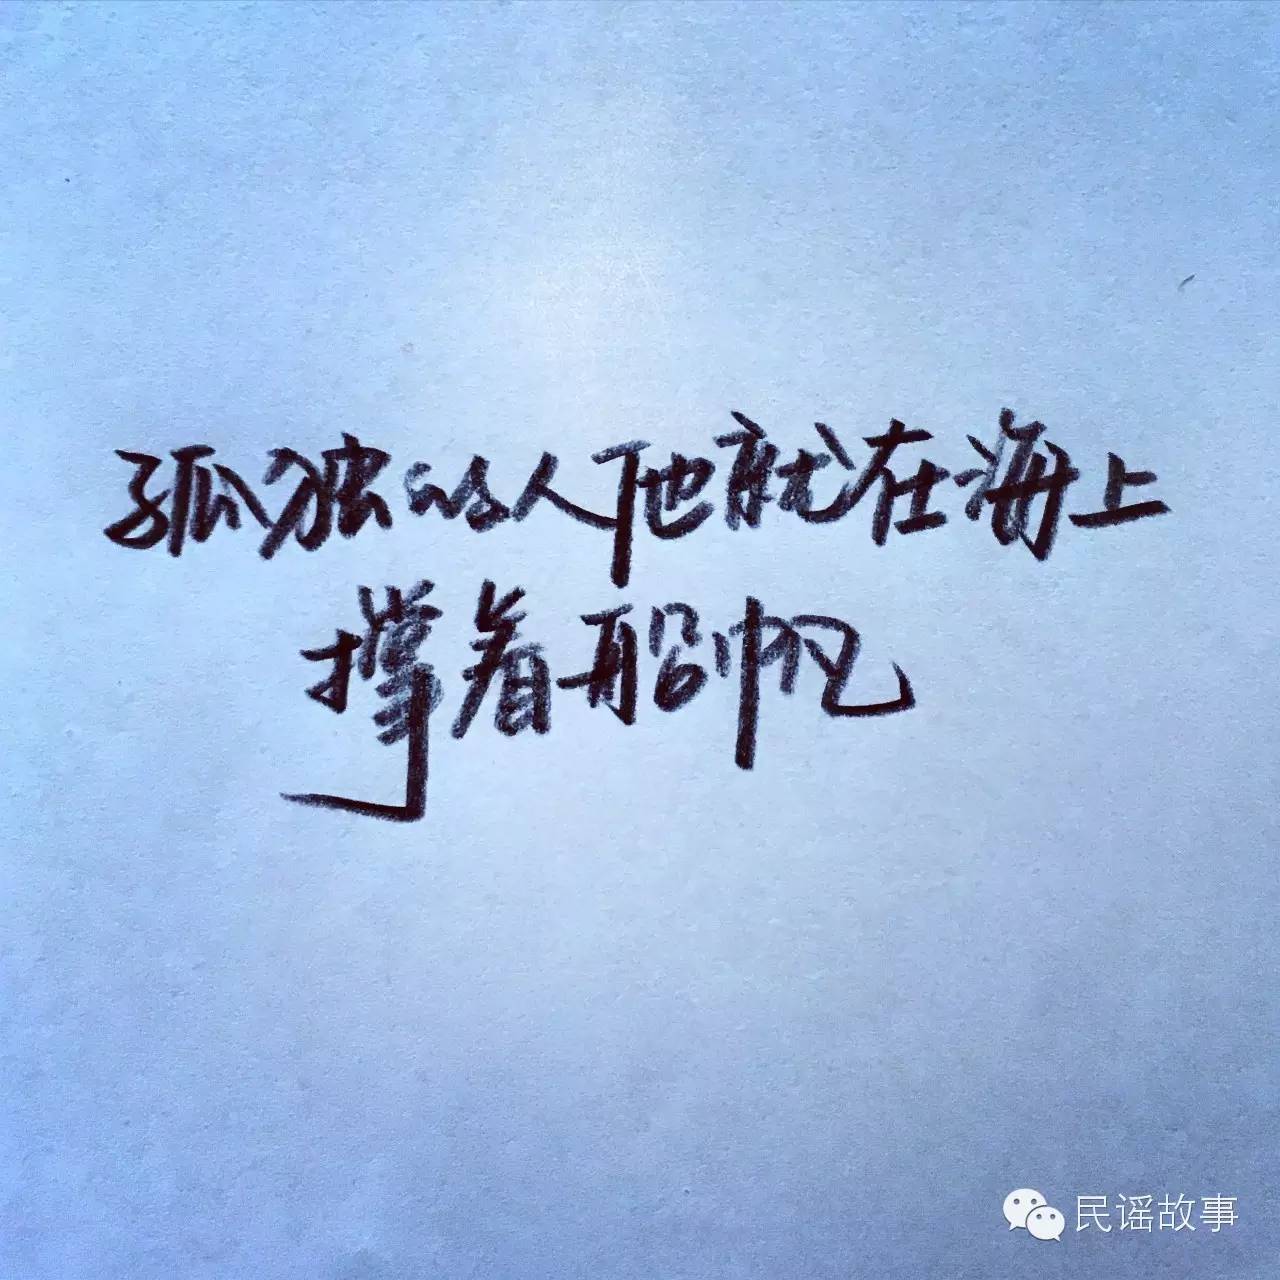 孤独的人他就在海上
撑着船帆
民谣故事